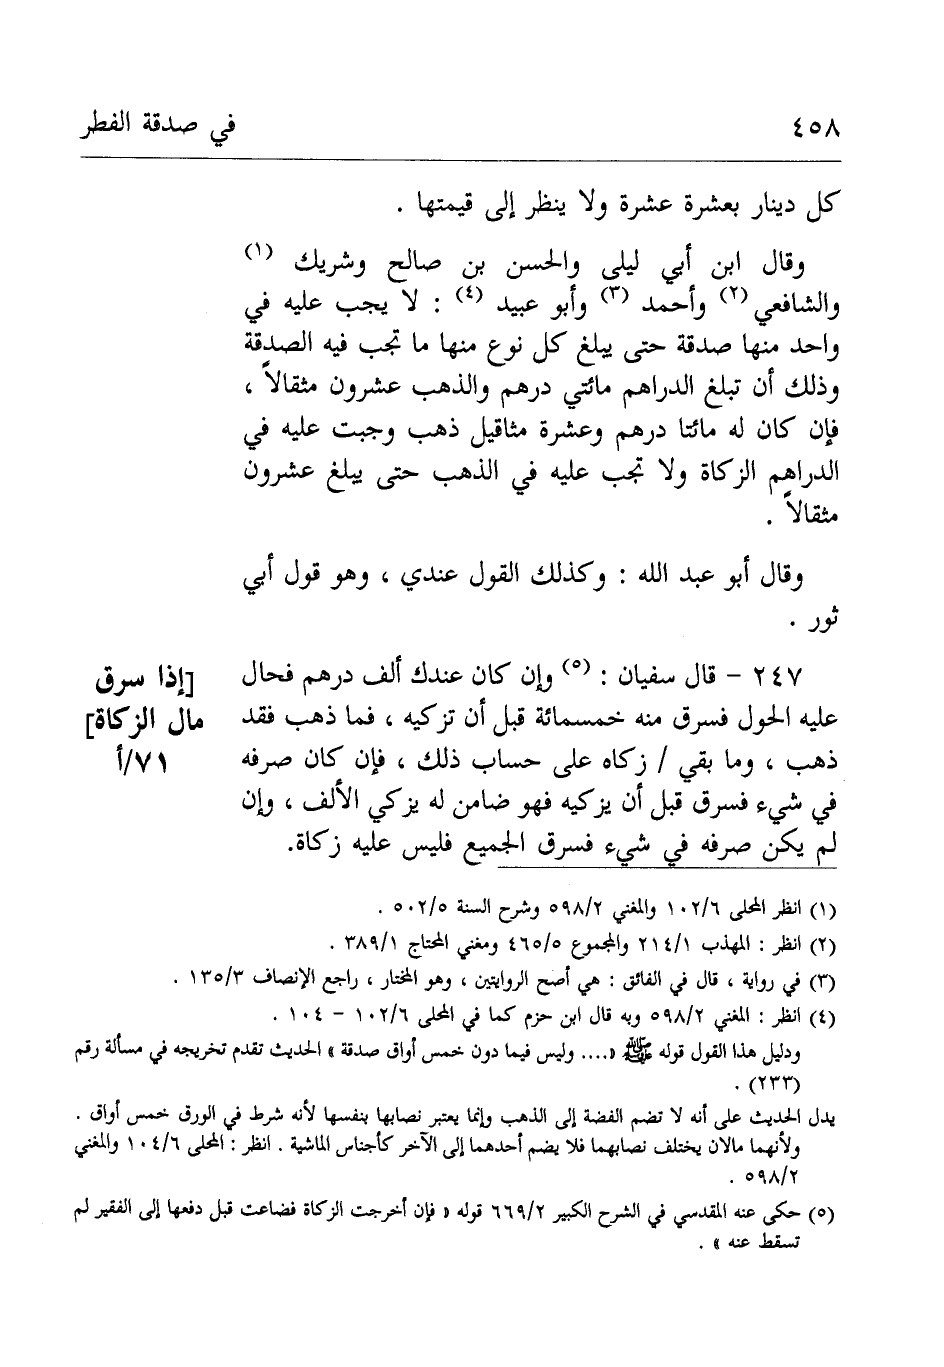 ٤٥٨ في صدقة الفطر
كل دينار بعشرة عشرة ولا ينظر إلى قيمتها .
وقال ابن أبي ليلى والحسن بن صالح وشريك (١)
والشافعي (٢) وأحمد (٣) وأبو عبيد (٤) : لا يجب عليه في
واحد منها صدقة حتى يبلغ كل نوع منها ما تجب فيه الصدقة
وذلك أن تبلغ الدراهم مائتي درهم والذهب عشرون مثقالاً ،
فإن كان له مائتا درهم وعشرة مثاقيل ذهب وجبت عليه في
الدراهم الزكاة ولا تجب عليه في الذهب حتى يبلغ عشرون
مثقالاً .
وقال أبو عبد الله : وكذلك القول عندي ، وهو قول أبي
ثور .
٢٤٧ - قال سفيان : (٥) وإن كان عندك ألف درهم فحال
عليه الحول فسرق منه خمسمائة قبل أن تزكيه ، فما ذهب فقد
ذهب ، وما بقي / زكاه على حساب ذلك ، فإن كان صرفه
في شيء فسرق قبل أن يزكيه فهو ضامن له يزكي الألف ، وإن
لم يكن صرفه في شيء فسرق الجميع فليس عليه زكاة.
[إذا سرق
مال الزكاة]
٧١/أ
(١) انظر المحلى ١٠٢/٦ والمغني ٥٩٨/٢ وشرح السنة ٥٠٢/٥ .
(٢) انظر : المهذب ٢١٤/١ والمجموع ٤٦٥/٥ ومغني المحتاج ٣٨٩/١ .
(٣) في رواية ، قال في الفائق : هي أصح الروايتين ، وهو المختار ، راجع الإنصاف ١٣٥/٣ .
(٤) انظر : المغني ٥٩٨/٢ وبه قال ابن حزم كما في المحلى ١٠٢/٦ - ١٠٤ .
ودليل هذا القول قوله ﷺ «.... وليس فيما دون خمس أواق صدقة » الحديث تقدم تخريجه في مسألة رقم
(٢٣٣) .
يدل الحديث على أنه لا تضم الفضة إلى الذهب وإنما يعتبر نصابها بنفسها لأنه شرط في الورق خمس أواق .
ولأنهما مالان يختلف نصابهما فلا يضم أحدهما إلى الآخر كأجناس الماشية . انظر : المحلى ١٠٤/٦ والمغني
٥٩٨/٢ .
(٥) حكى عنه المقدسي في الشرح الكبير ٦٦٩/٢ قوله « فإن أخرجت الزكاة فضاعت قبل دفعها إلى الفقير لم
تسقط عنه » .